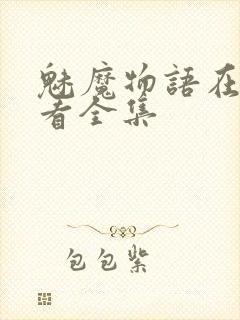 魅魔物語在
看全集
包包紫